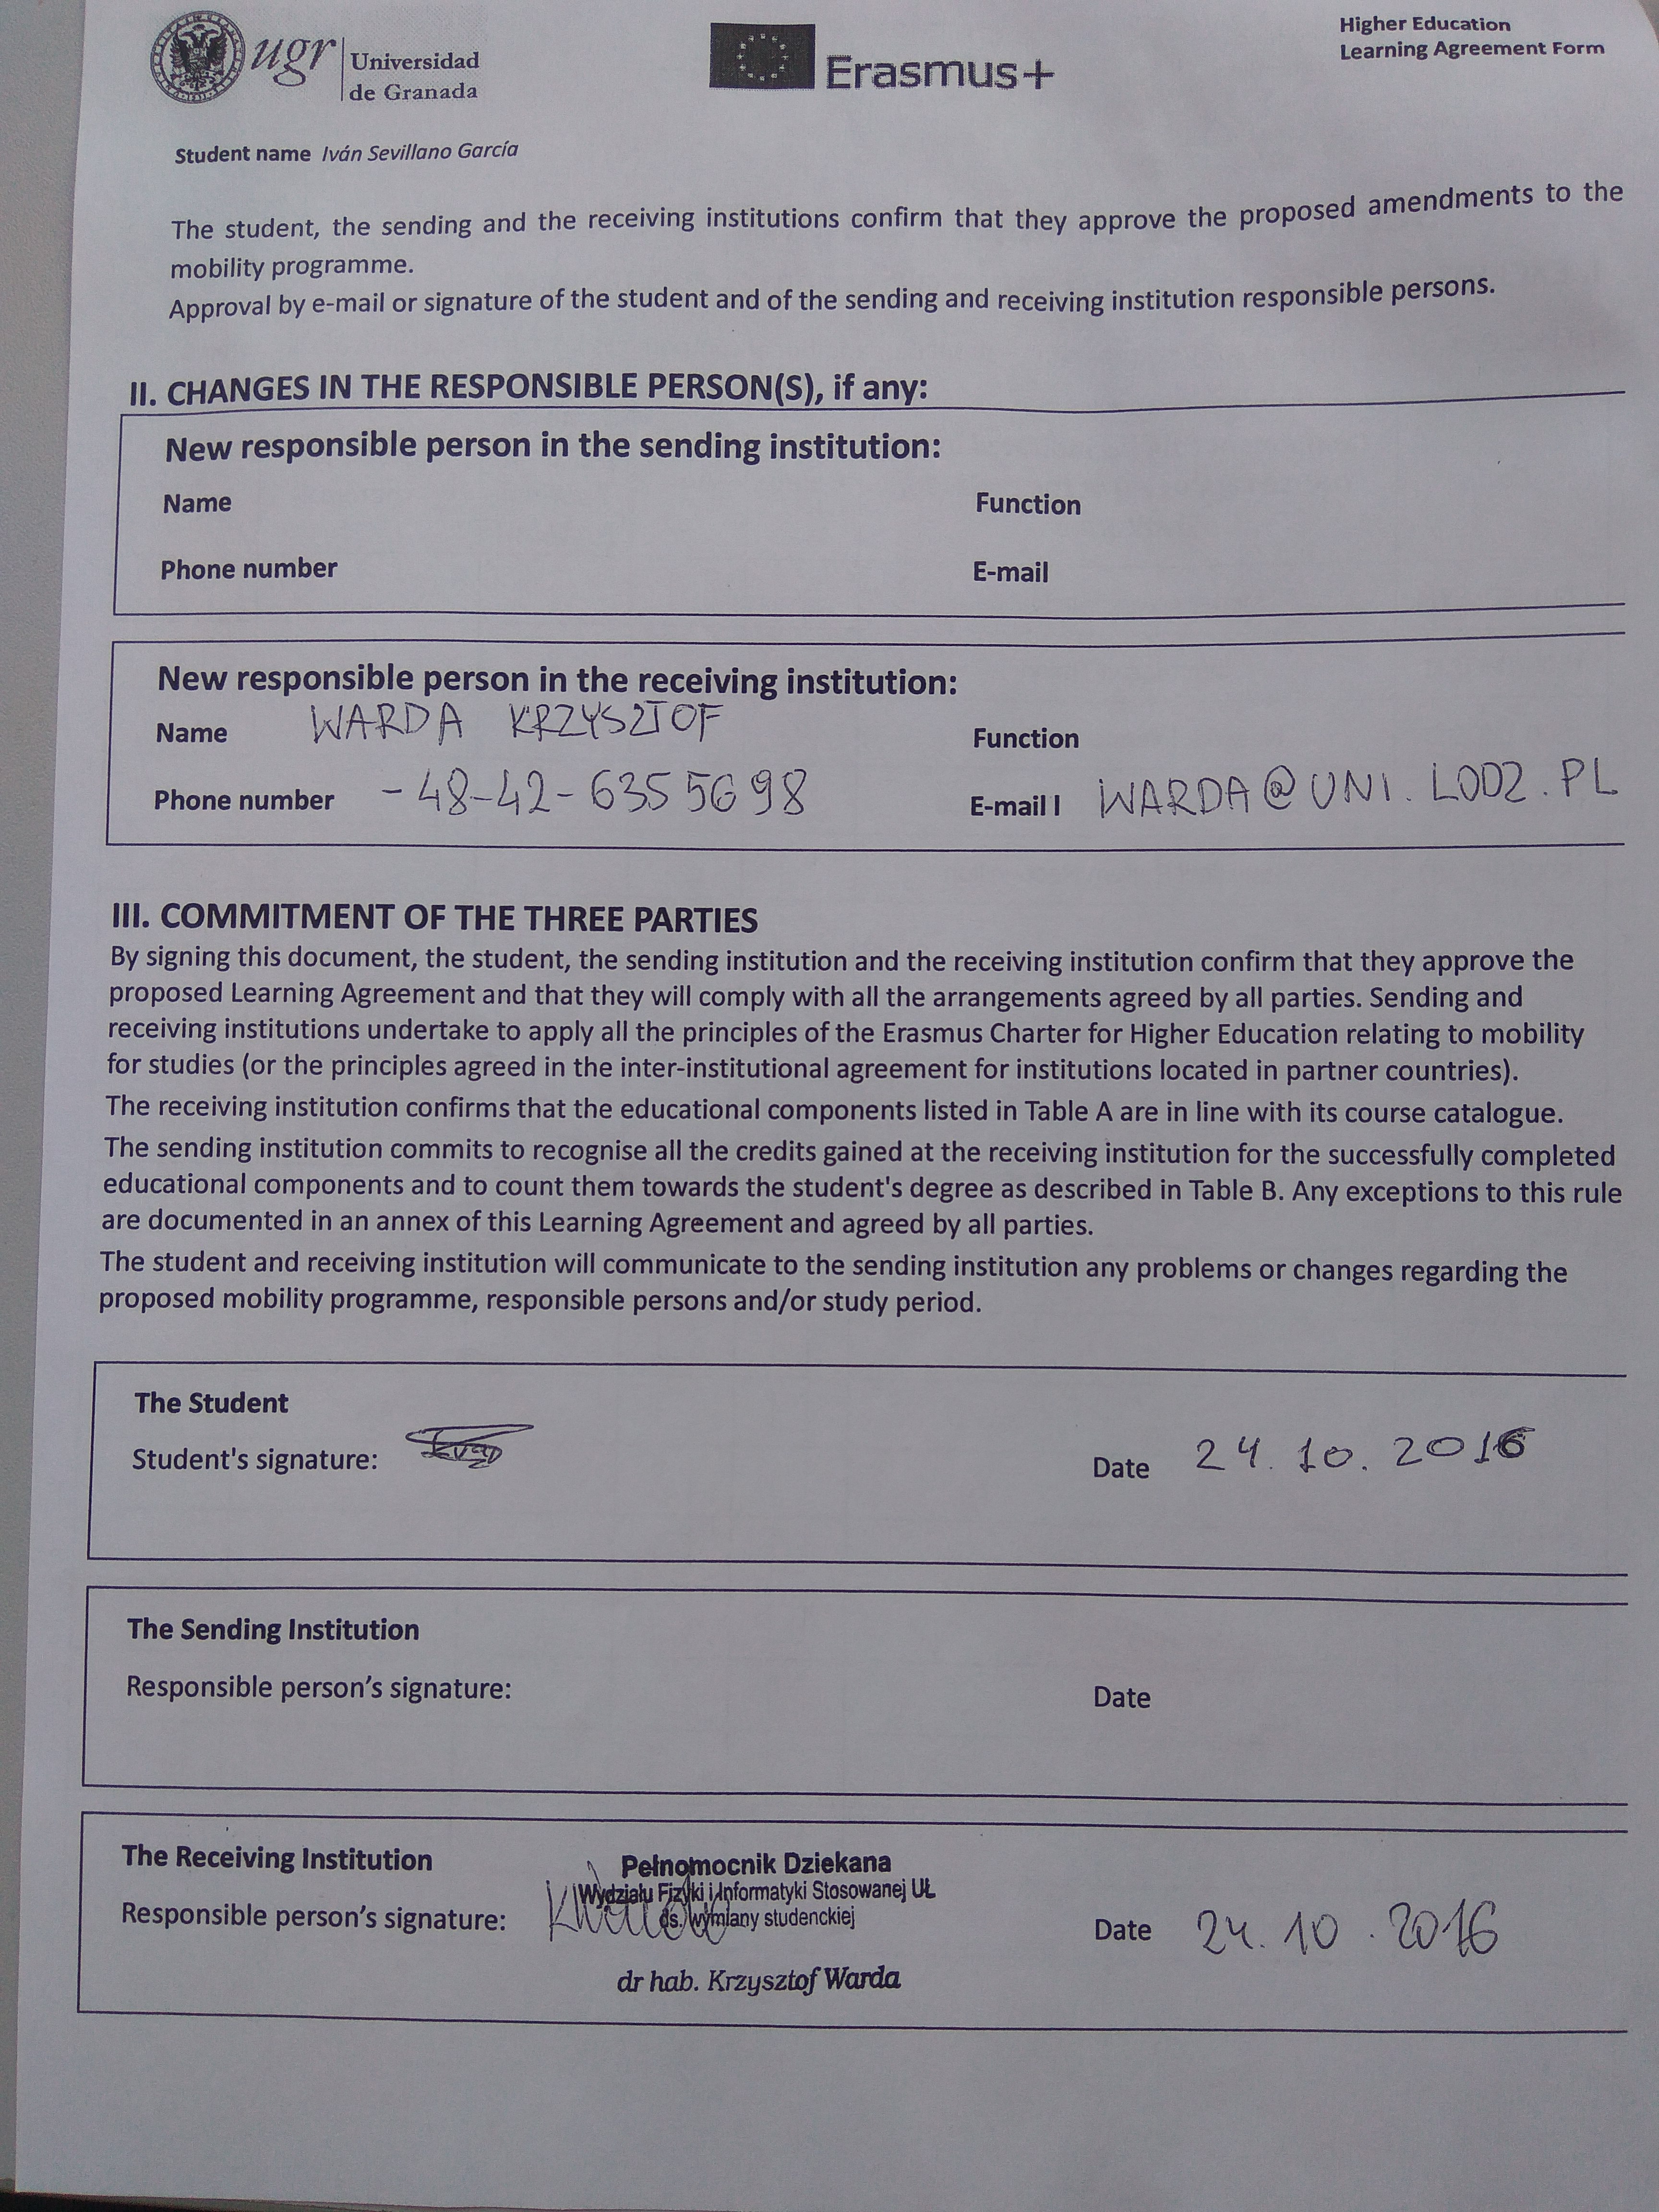 ugr
Universidad
de Granada
Erasmus+
Higher Education
Learning Agreement Form
Student name Iván Sevillano García
The student, the sending and the receiving institutions confirm that they approve the proposed amendments to the
mobility programme.
Approval by e-mail or signature of the student and of the sending and receiving institution responsible persons.
II. CHANGES IN THE RESPONSIBLE PERSON(S), if any:
New responsible person in the sending institution:
Name Function
Phone number E-mail
New responsible person in the receiving institution:
Name WARDA KRZYSZTOF Function
Phone number -48-42-635 56 98 E-mail I WARDA@UNI.LODZ.PL
III. COMMITMENT OF THE THREE PARTIES
By signing this document, the student, the sending institution and the receiving institution confirm that they approve the
proposed Learning Agreement and that they will comply with all the arrangements agreed by all parties. Sending and
receiving institutions undertake to apply all the principles of the Erasmus Charter for Higher Education relating to mobility
for studies (or the principles agreed in the inter-institutional agreement for institutions located in partner countries).
The receiving institution confirms that the educational components listed in Table A are in line with its course catalogue.
The sending institution commits to recognise all the credits gained at the receiving institution for the successfully completed
educational components and to count them towards the student's degree as described in Table B. Any exceptions to this rule
are documented in an annex of this Learning Agreement and agreed by all parties.
The student and receiving institution will communicate to the sending institution any problems or changes regarding the
proposed mobility programme, responsible persons and/or study period.
The Student
Student's signature: Date 24.10.2016
The Sending Institution
Responsible person’s signature: Date
The Receiving Institution
Pełnomocnik Dziekana
Wydziału Fizyki i Informatyki Stosowanej UŁ
ds. wymiany studenckiej
Responsible person’s signature: Date 24.10.2016
dr hab. Krzysztof Warda